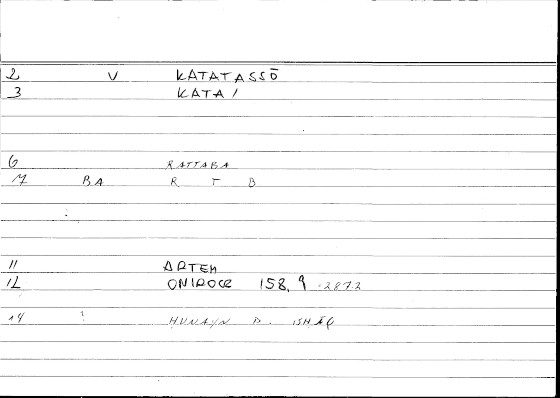 2 V KATATASSŌ
3 KATA/
6 RATTABA
7 BA R T B
:
11 ARTEM
12 ONIROCR 158,9 -287.2
14 : HUNAYN B. ISHĀQ